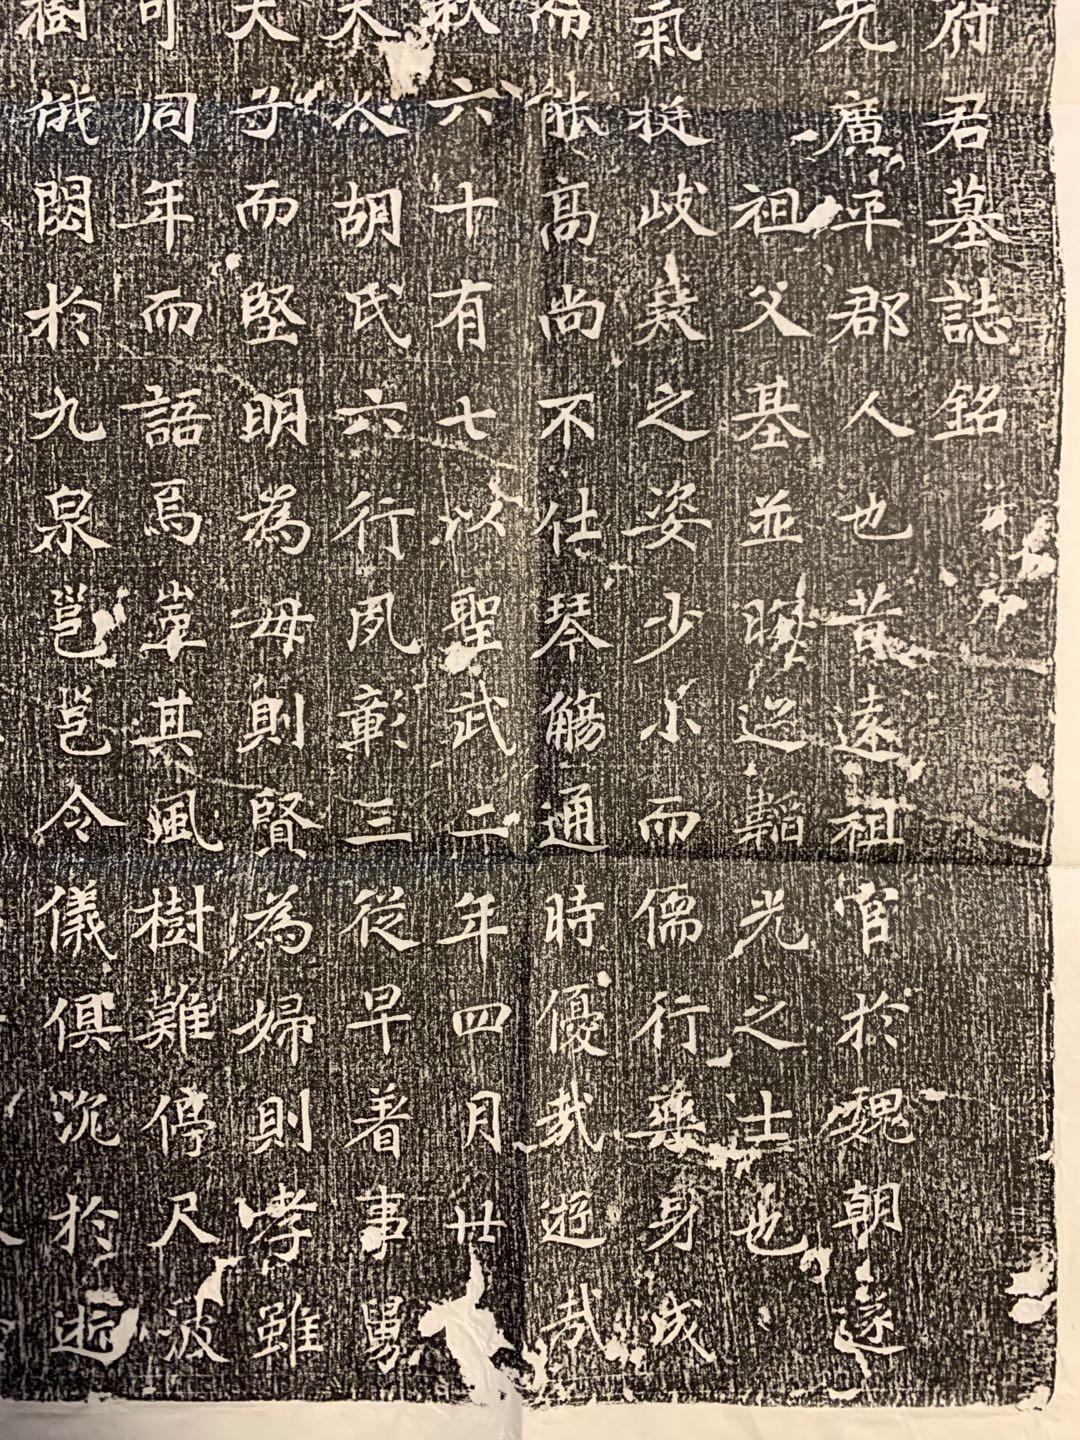 府君墓誌銘
先廣平郡人也昔遠祖官於魏朝遂
祖父基並晦迹韜光之士也
氣挺岐嶷之姿少小而儒行藥身成
而能高尚不仕琴觴通時優哉遊哉
秋六十有七以聖武二年四月廿
夫人胡氏六行夙彰三從早著事舅
夫子而堅明為母則賢為婦則孝雖
可同年而語焉豈其風樹難停尺波
樹俄閟於九泉邕邕令儀俱沉於逝